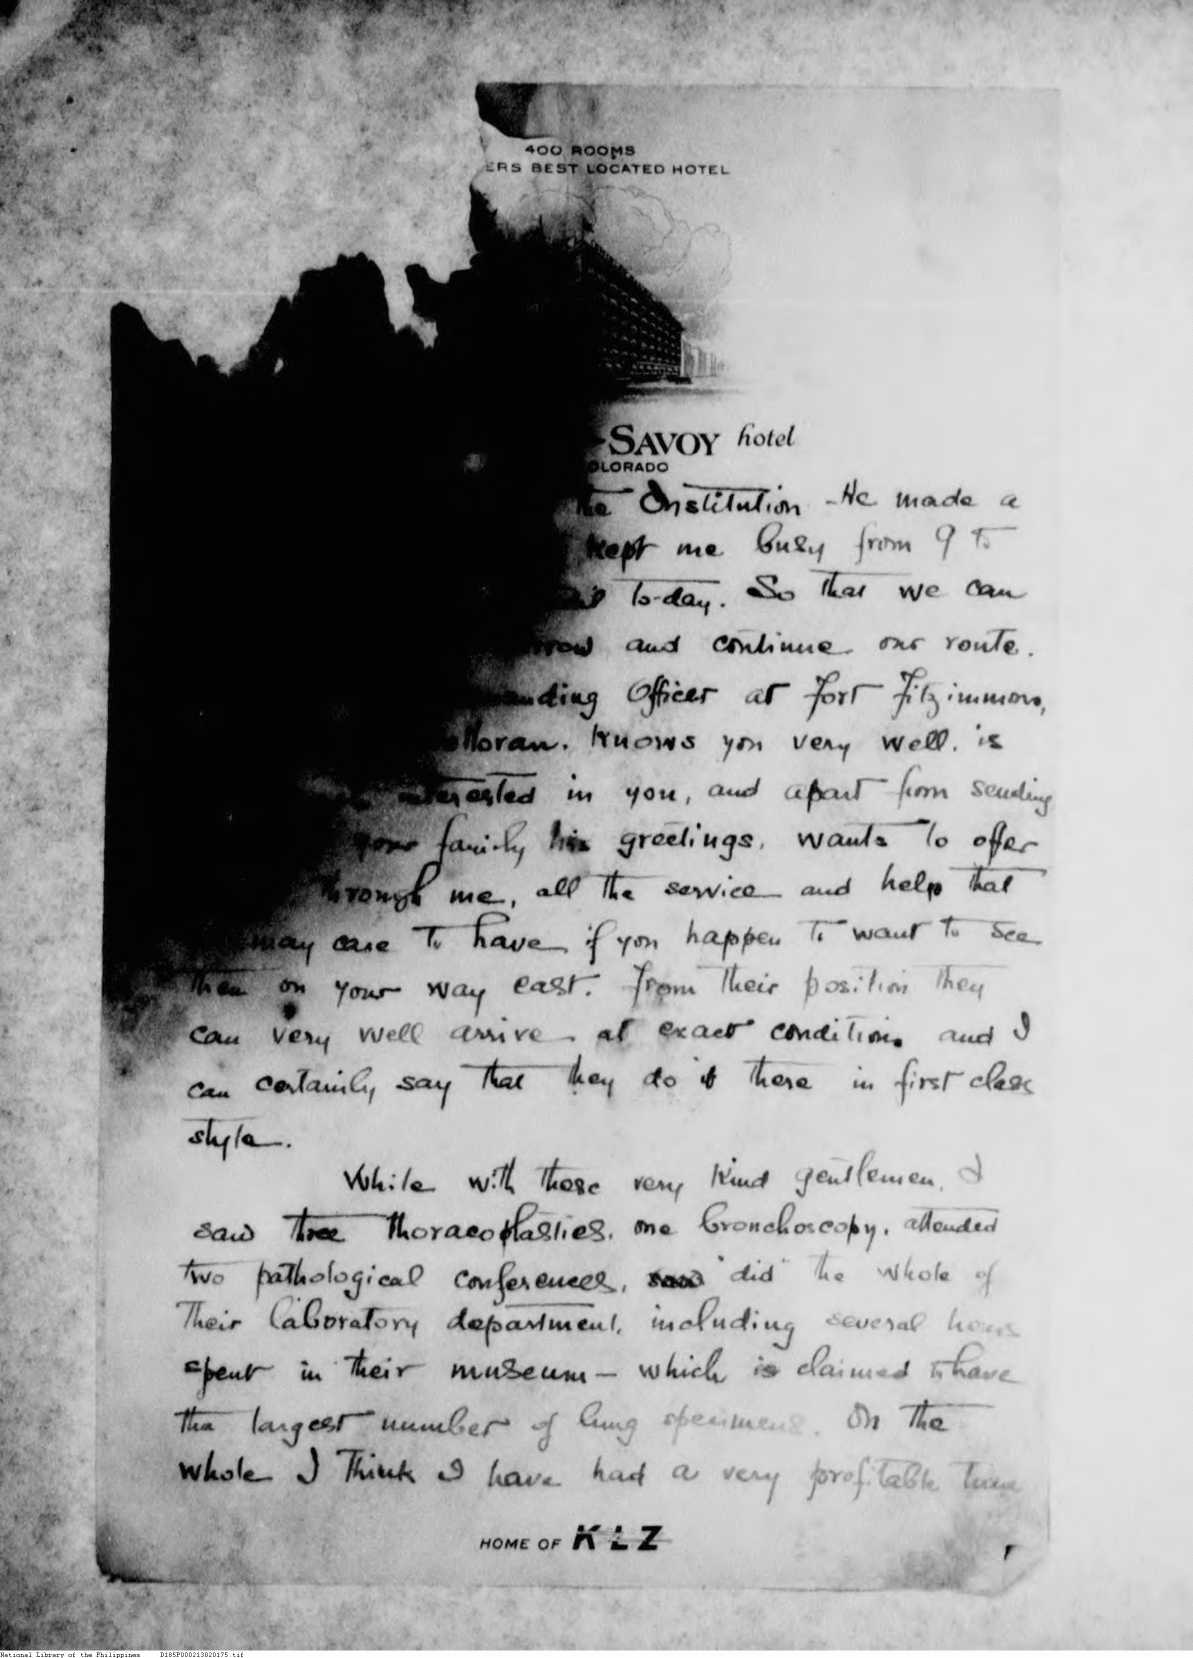 400 ROOMS
ERS BEST LOCATED HOTEL
SAVOY hotel
OLORADO
the Institution - He made a
kept me busy from 9 to
to-day. So that we can
rrow and continue our route.
anding Officer at Fort Fitzimmons,
Knows you very well, is
interested in you, and apart from sending
your family his greetings, wants to offer
through me, all the service and help that
may care to have if you happen to want to see
them on your way east. From their position they
can very well arrive at exact conditions and I
can certainly say that they do it there in first class
style.
While with these very kind gentlemen, I
saw three thoracoplasties, one bronchoscopy, attended
two pathological conferences, saw "did" the whole of
their laboratory department, including several hours
spent in their museum — which is claimed to have
the largest number of lung specimens. On the
whole I think I have had a very profitable time
HOME OF KLZ
National Library of the Philippines D185P000213020175.tif